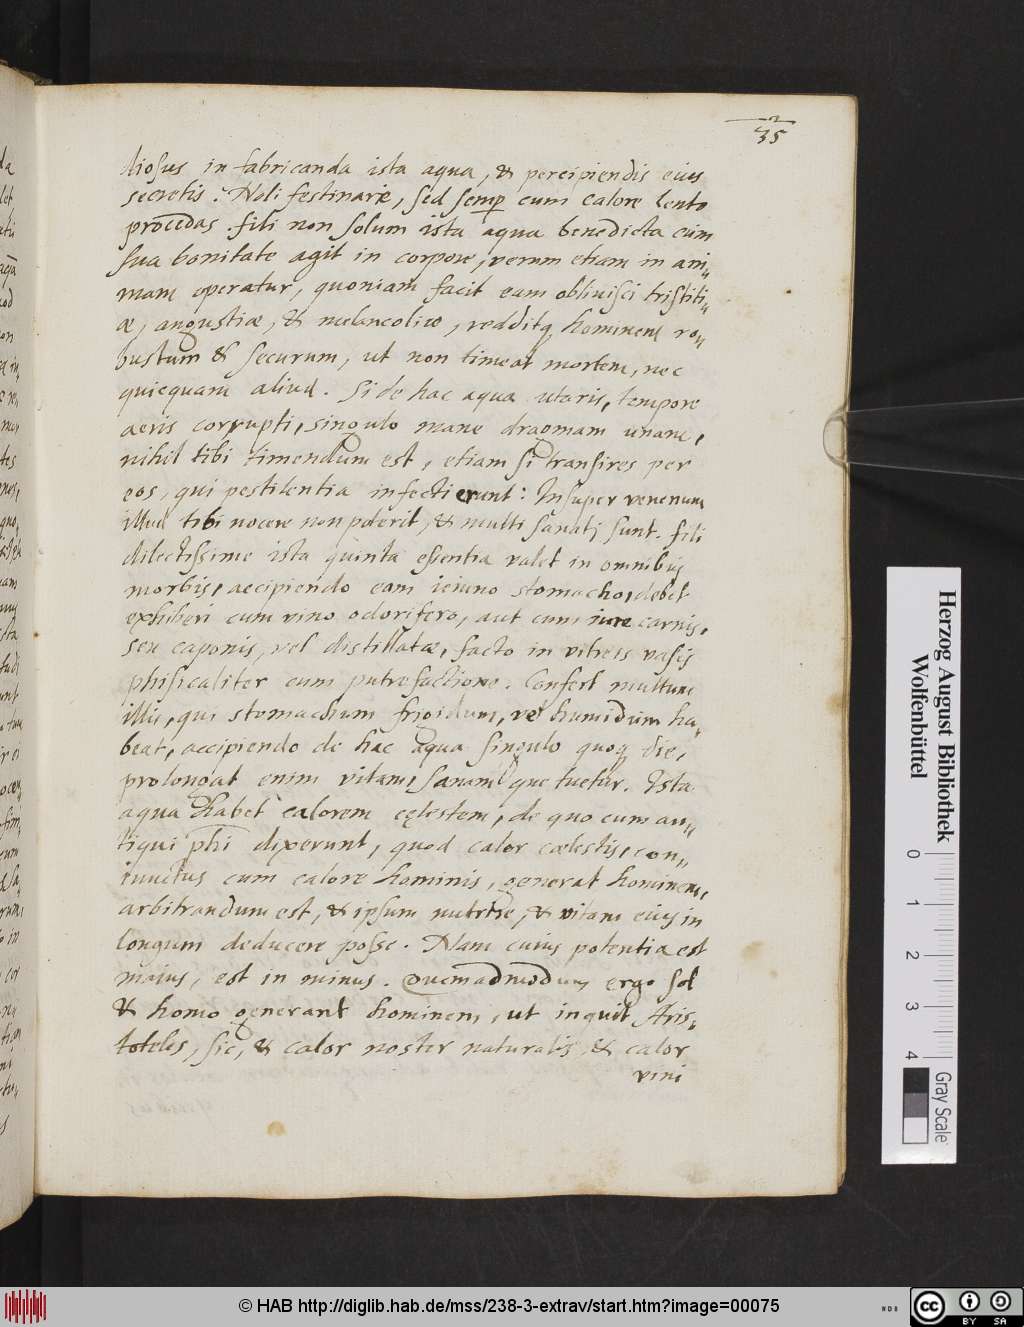 35
diosus in fabricanda ista aqua, & percipiendis eius
secretis. Noli festinare, sed semp cum calore lento
procedas. fili non solum ista aqua benedicta cum
sua bonitate agit in corpore, verum etiam in ani„
mam operatur, quoniam facit eam obliuisci tristiti„
æ, angustiæ, & melancoliæ, redditq hominem ro„
bustum & securum, ut non timeat mortem, nec
quicquam aliud. Si de hac aqua utaris, tempore
aeris corrupti, singulo mane dragmam unam,
nihil tibi timendum est, etiam si transires per
eos, qui pestilentia infecti erunt: Insuper venenum
illud tibi nocere non poterit, & multi sanati sunt. fili
dilectissime ista quinta essentia valet in omnibus
morbis, accipiendo eam ieiuno stomacho, debet
exhiberi cum vino odorifero, aut cum iure carnis,
seu caponis, vel distillatæ, facto in vitreis vasis
phisicaliter cum putrefactione. Confert multum
illis, qui stomachum frigidum, vel humidum ha„
beat, accipiendo de hac aqua singulo quoq die,
prolongat enim vitam, sanamque tuetur. Ista
aqua habet calorem cęlestem, de quo cum an„
tiqui phi dixerunt, quod calor cælestis, con„
iunctus cum calore hominis, generat hominem,
arbitrandum est, & ipsum nutrire, & vitam eius in
longum deducere posse. Nam cuius potentia est
maius, est in minus. Quemadmodum ergo sol
& homo generant hominem, ut inquit Aris„
toteles, sic, & calor noster naturalis, & calor
vini
Herzog August Bibliothek
Wolfenbüttel
0 1 2 3 4
Gray Scale
© HAB http://diglib.hab.de/mss/238-3-extrav/start.htm?image=00075
NDB
cc BY SA